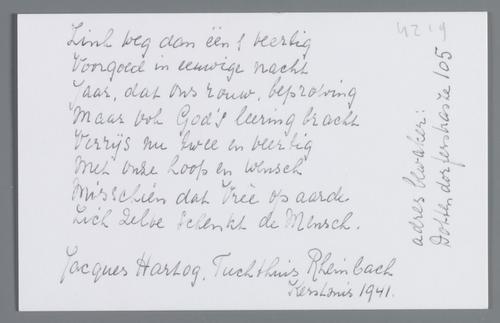 Zink weg dan één & veertig
Voorgoed in eeuwige nacht
Jaar, dat ons rouw, beproeving
Maar ook God's leering bracht
Verrijs nu twee en veertig
Met onze hoop en wensch
Misschien dat Vreê op aarde
Zich Zelve schenkt de Mensch.
Jacques Hartog. Tuchthuis Rheinbach
Kerstmis 1941.
adres bewaker:
Dottendorferstrasse 105